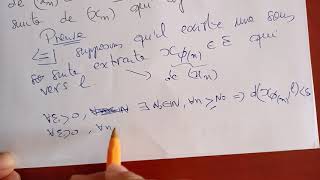 suite de (xₙ) qui
Preuve
(⇐) supposons qu'il existe une sous
suite extraite x_φ(n) ∈ E qui
de (xₙ)
vers l
∀ε>0, ∃N₀∈ℕ, ∀n ≥ N₀ ⇒ d(x_φ(n), l)<ε
∀ε>0, ∀n